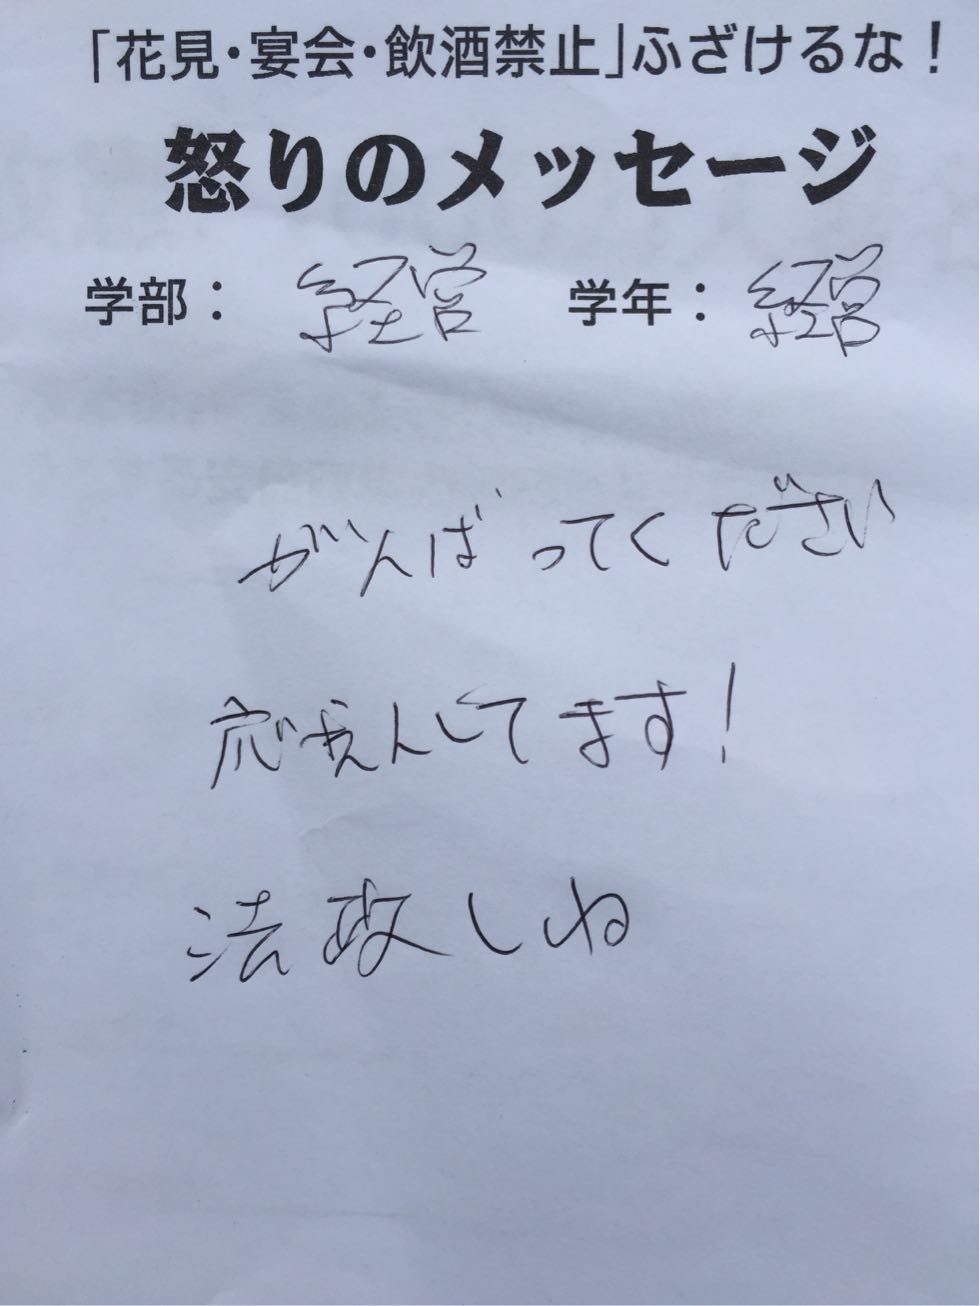 「花見・宴会・飲酒禁止」ふざけるな！
怒りのメッセージ
学部： 経営 学年： 経営
がんばってください
応えんしてます！
法政しね